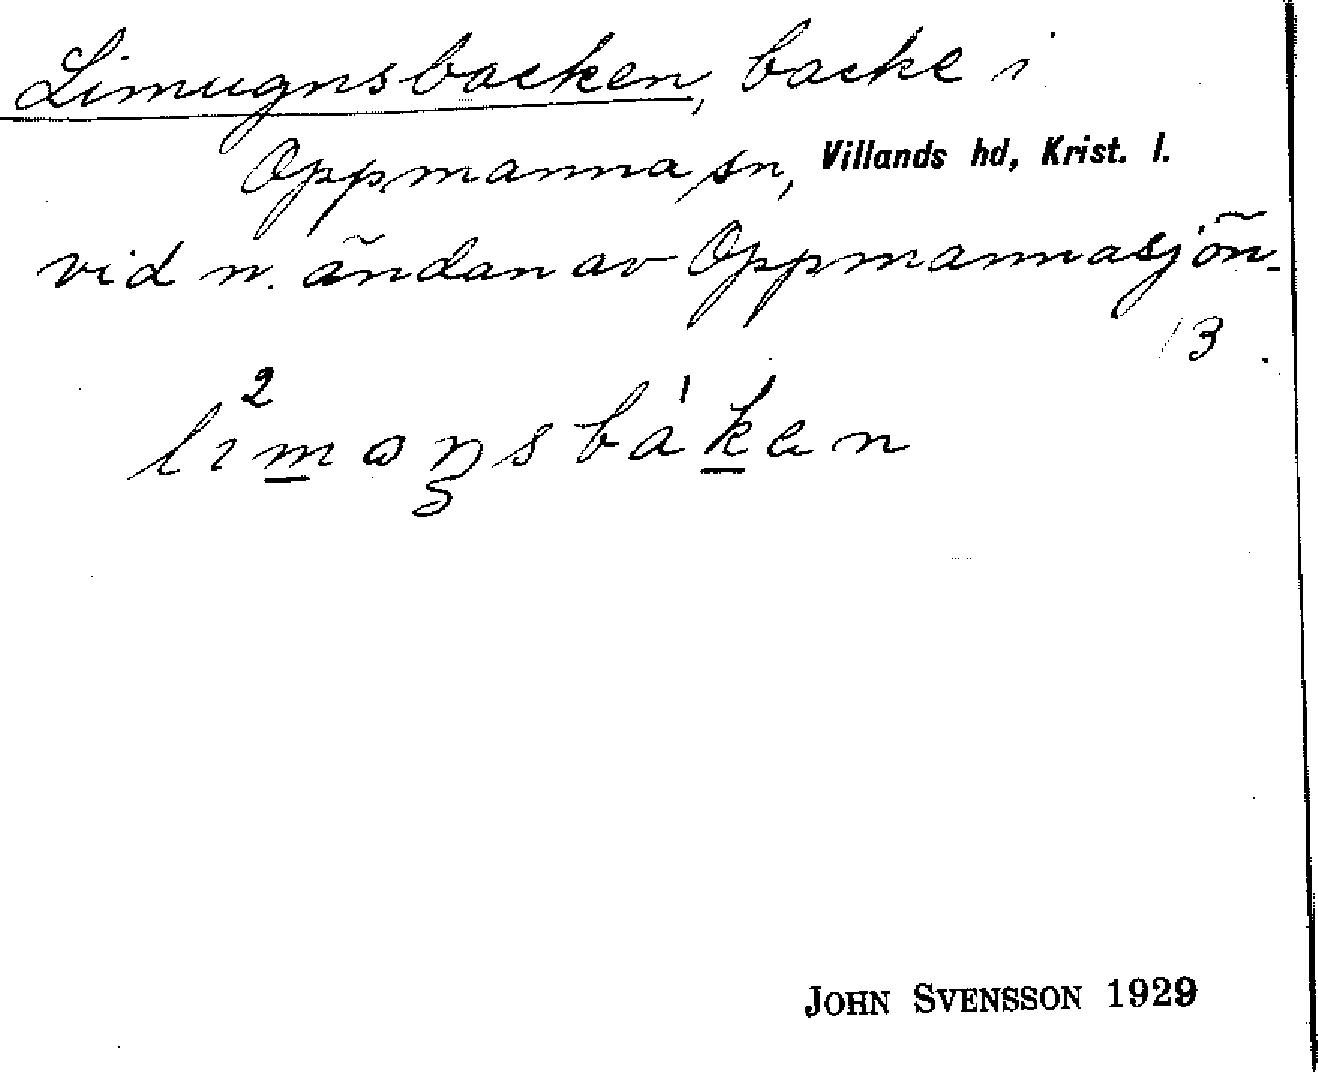 Limugnsbacken, backe i
Oppmanna sn, Villands hd, Krist. l.
vid n. ändan av Oppmannasjön.
13.
JOHN SVENSSON 1929